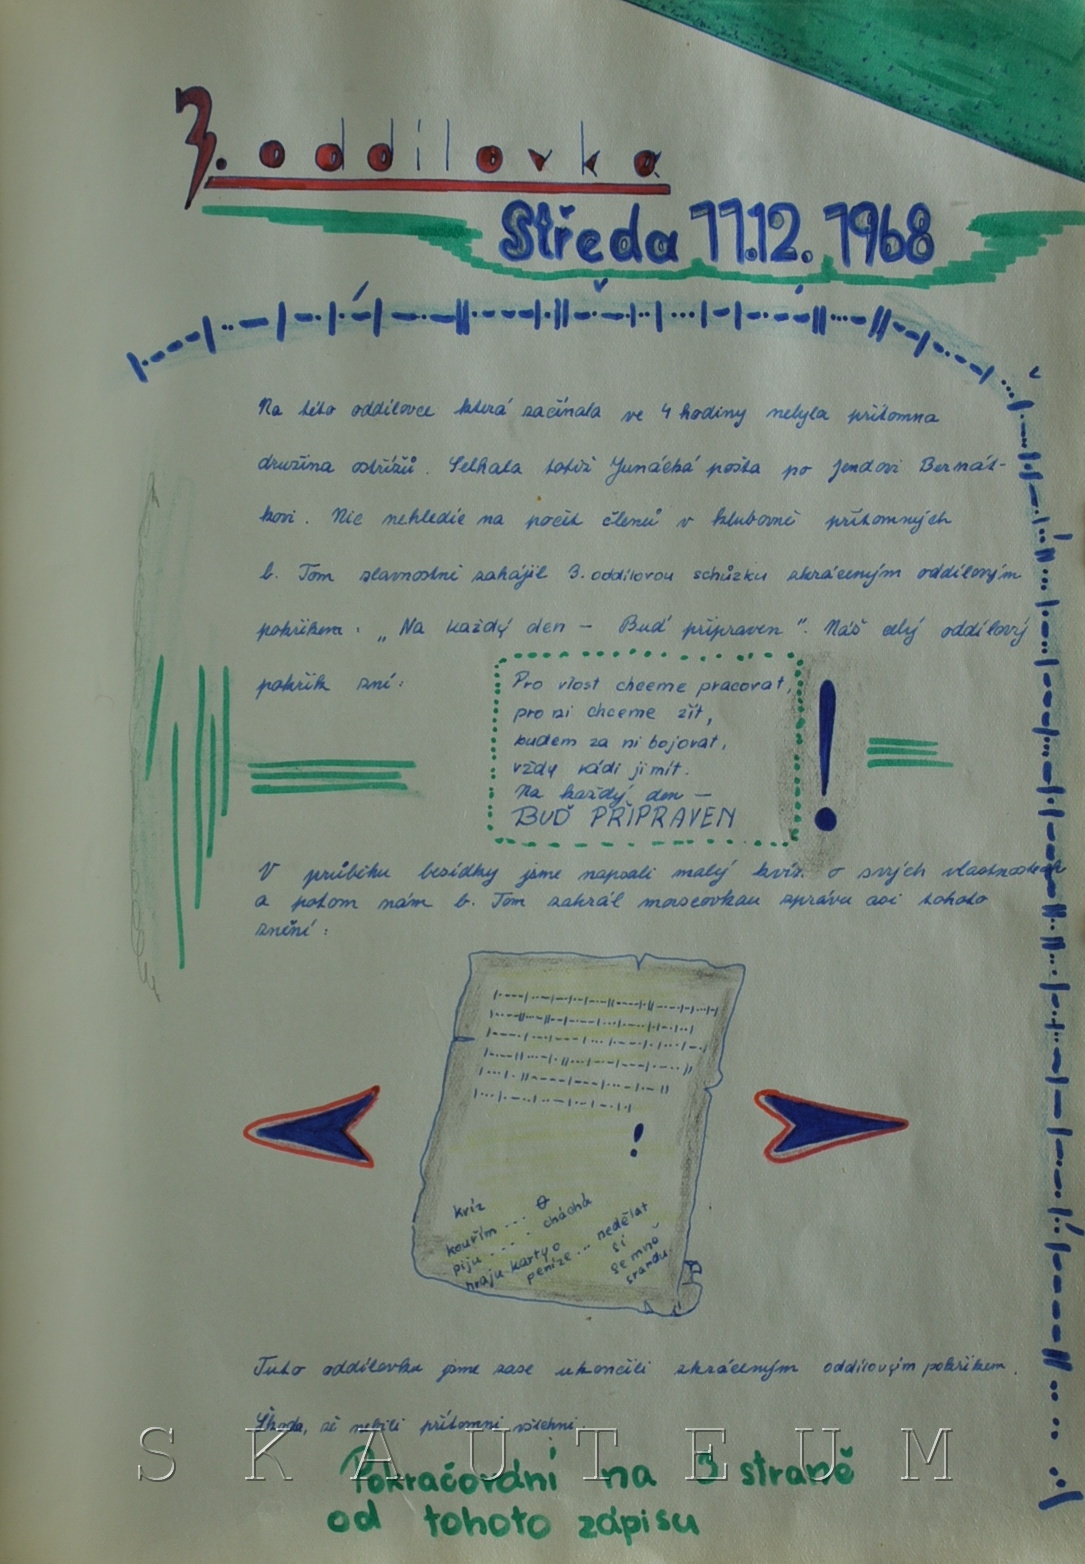 3. oddílovka
Středa 11.12. 1968
Na této oddílovce která začínala ve 4 hodiny nebyla přítomna
družina ostřížů. Selhala totiž Junácká pošta po Jendovi Bernát-
kovi. Nic nehledie na počet členů v klubovně přítomných
b. Tom slavnostně zahájil 3. oddílovou schůzku zkráceným oddílovým
pokřikem: „Na každý den — Buď připraven". Náš celý oddílový
pokřik zní:
Pro vlast chceme pracovat,
pro ni chceme žít,
budem za ni bojovat,
vždy rádi ji mít.
Na každý den —
BUĎ PŘIPRAVEN
!
V průběhu besídky jsme napsali malý kvíz o svých vlastnostech
a potom nám b. Tom zahrál morseovkou zprávu asi tohoto
znění:
!
kvíz
kouřím ... 0
piju .... cháchá
hraju karty o
peníze ... nedělat
si
ze mně
srandu
Tuto oddílovku jsme zase ukončili zkráceným oddílovým pokřikem.
Škoda, že nebili přítomni všichni
SKAUTEUM
Pokračování na 3 straně
od tohoto zápisu